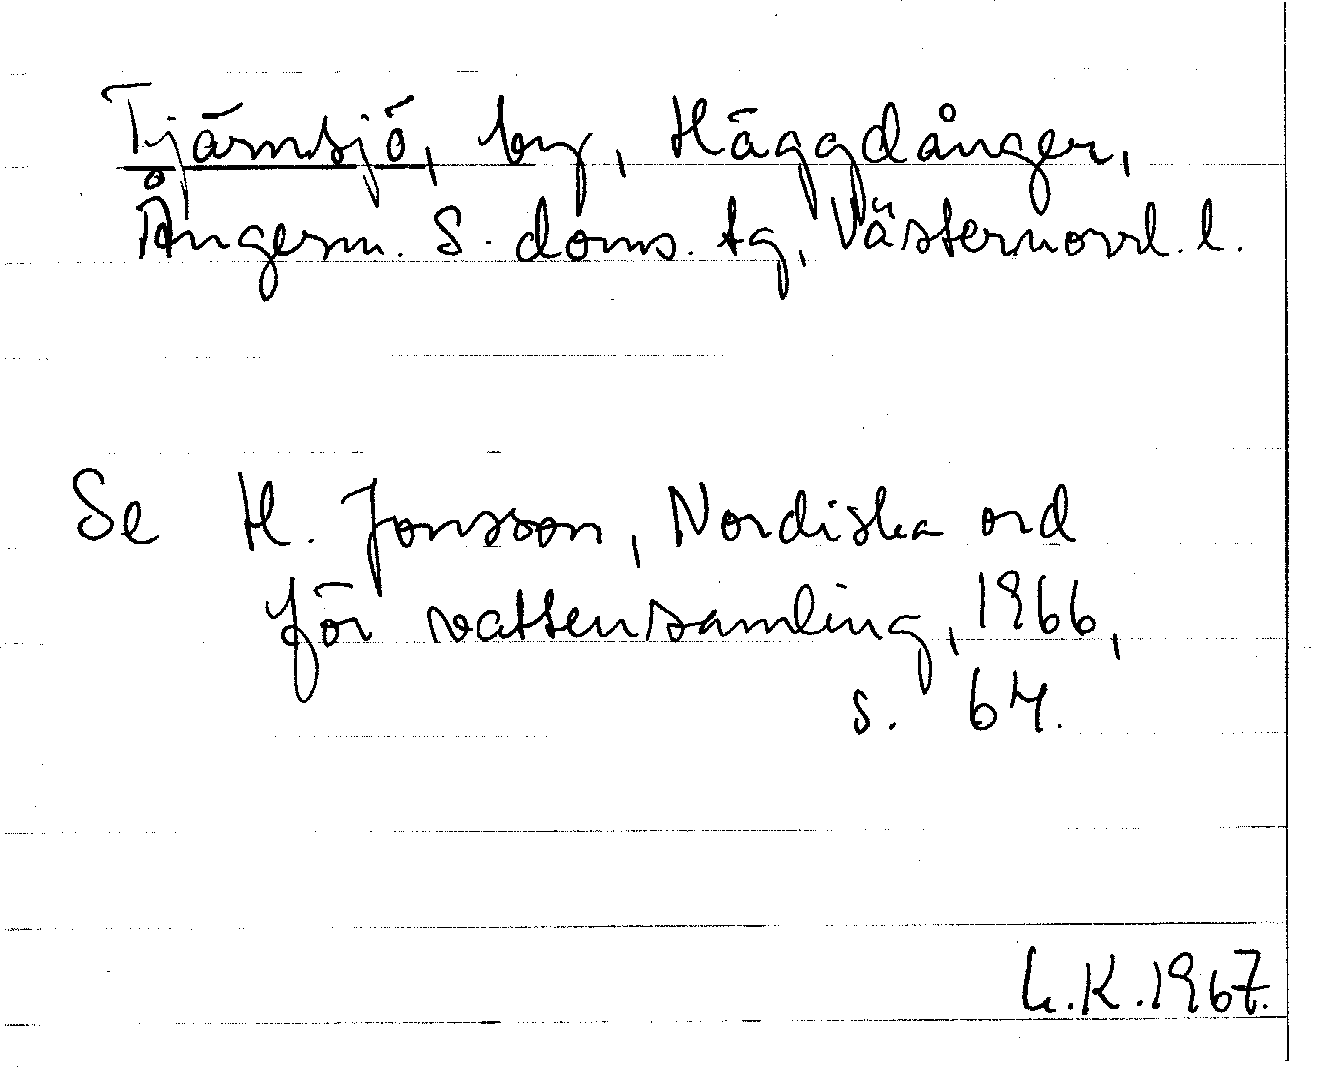 Tjärnsjö, by, Häggdånger,
Ångerm. S. doms. tg, Västernorrl. l.
Se H. Jonsson, Nordiska ord
för vattensamling, 1966,
s. 64.
L.K. 1967.